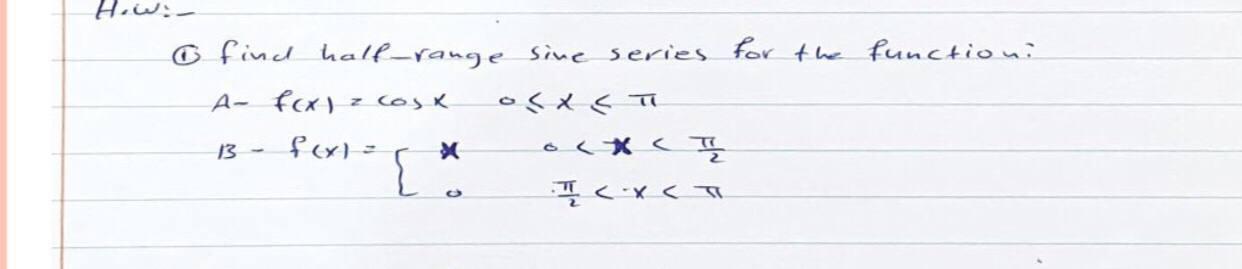 H.w:-
① find half-range sine series for the function:
A- f(x) = cos x 0 ≤ x ≤ π
B - f(x) = { x 0 < x < π/2
0 π/2 < x < π